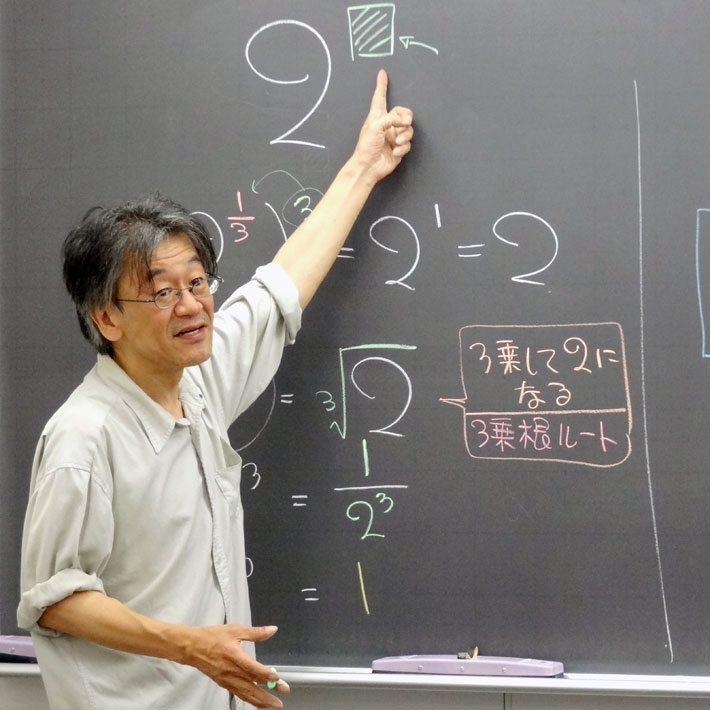 2
2^(1/3) )^3 = 2^1 = 2
= ∛2
3乗して2に
なる
3乗根ルート
3 = 1/2^3
0 = 1